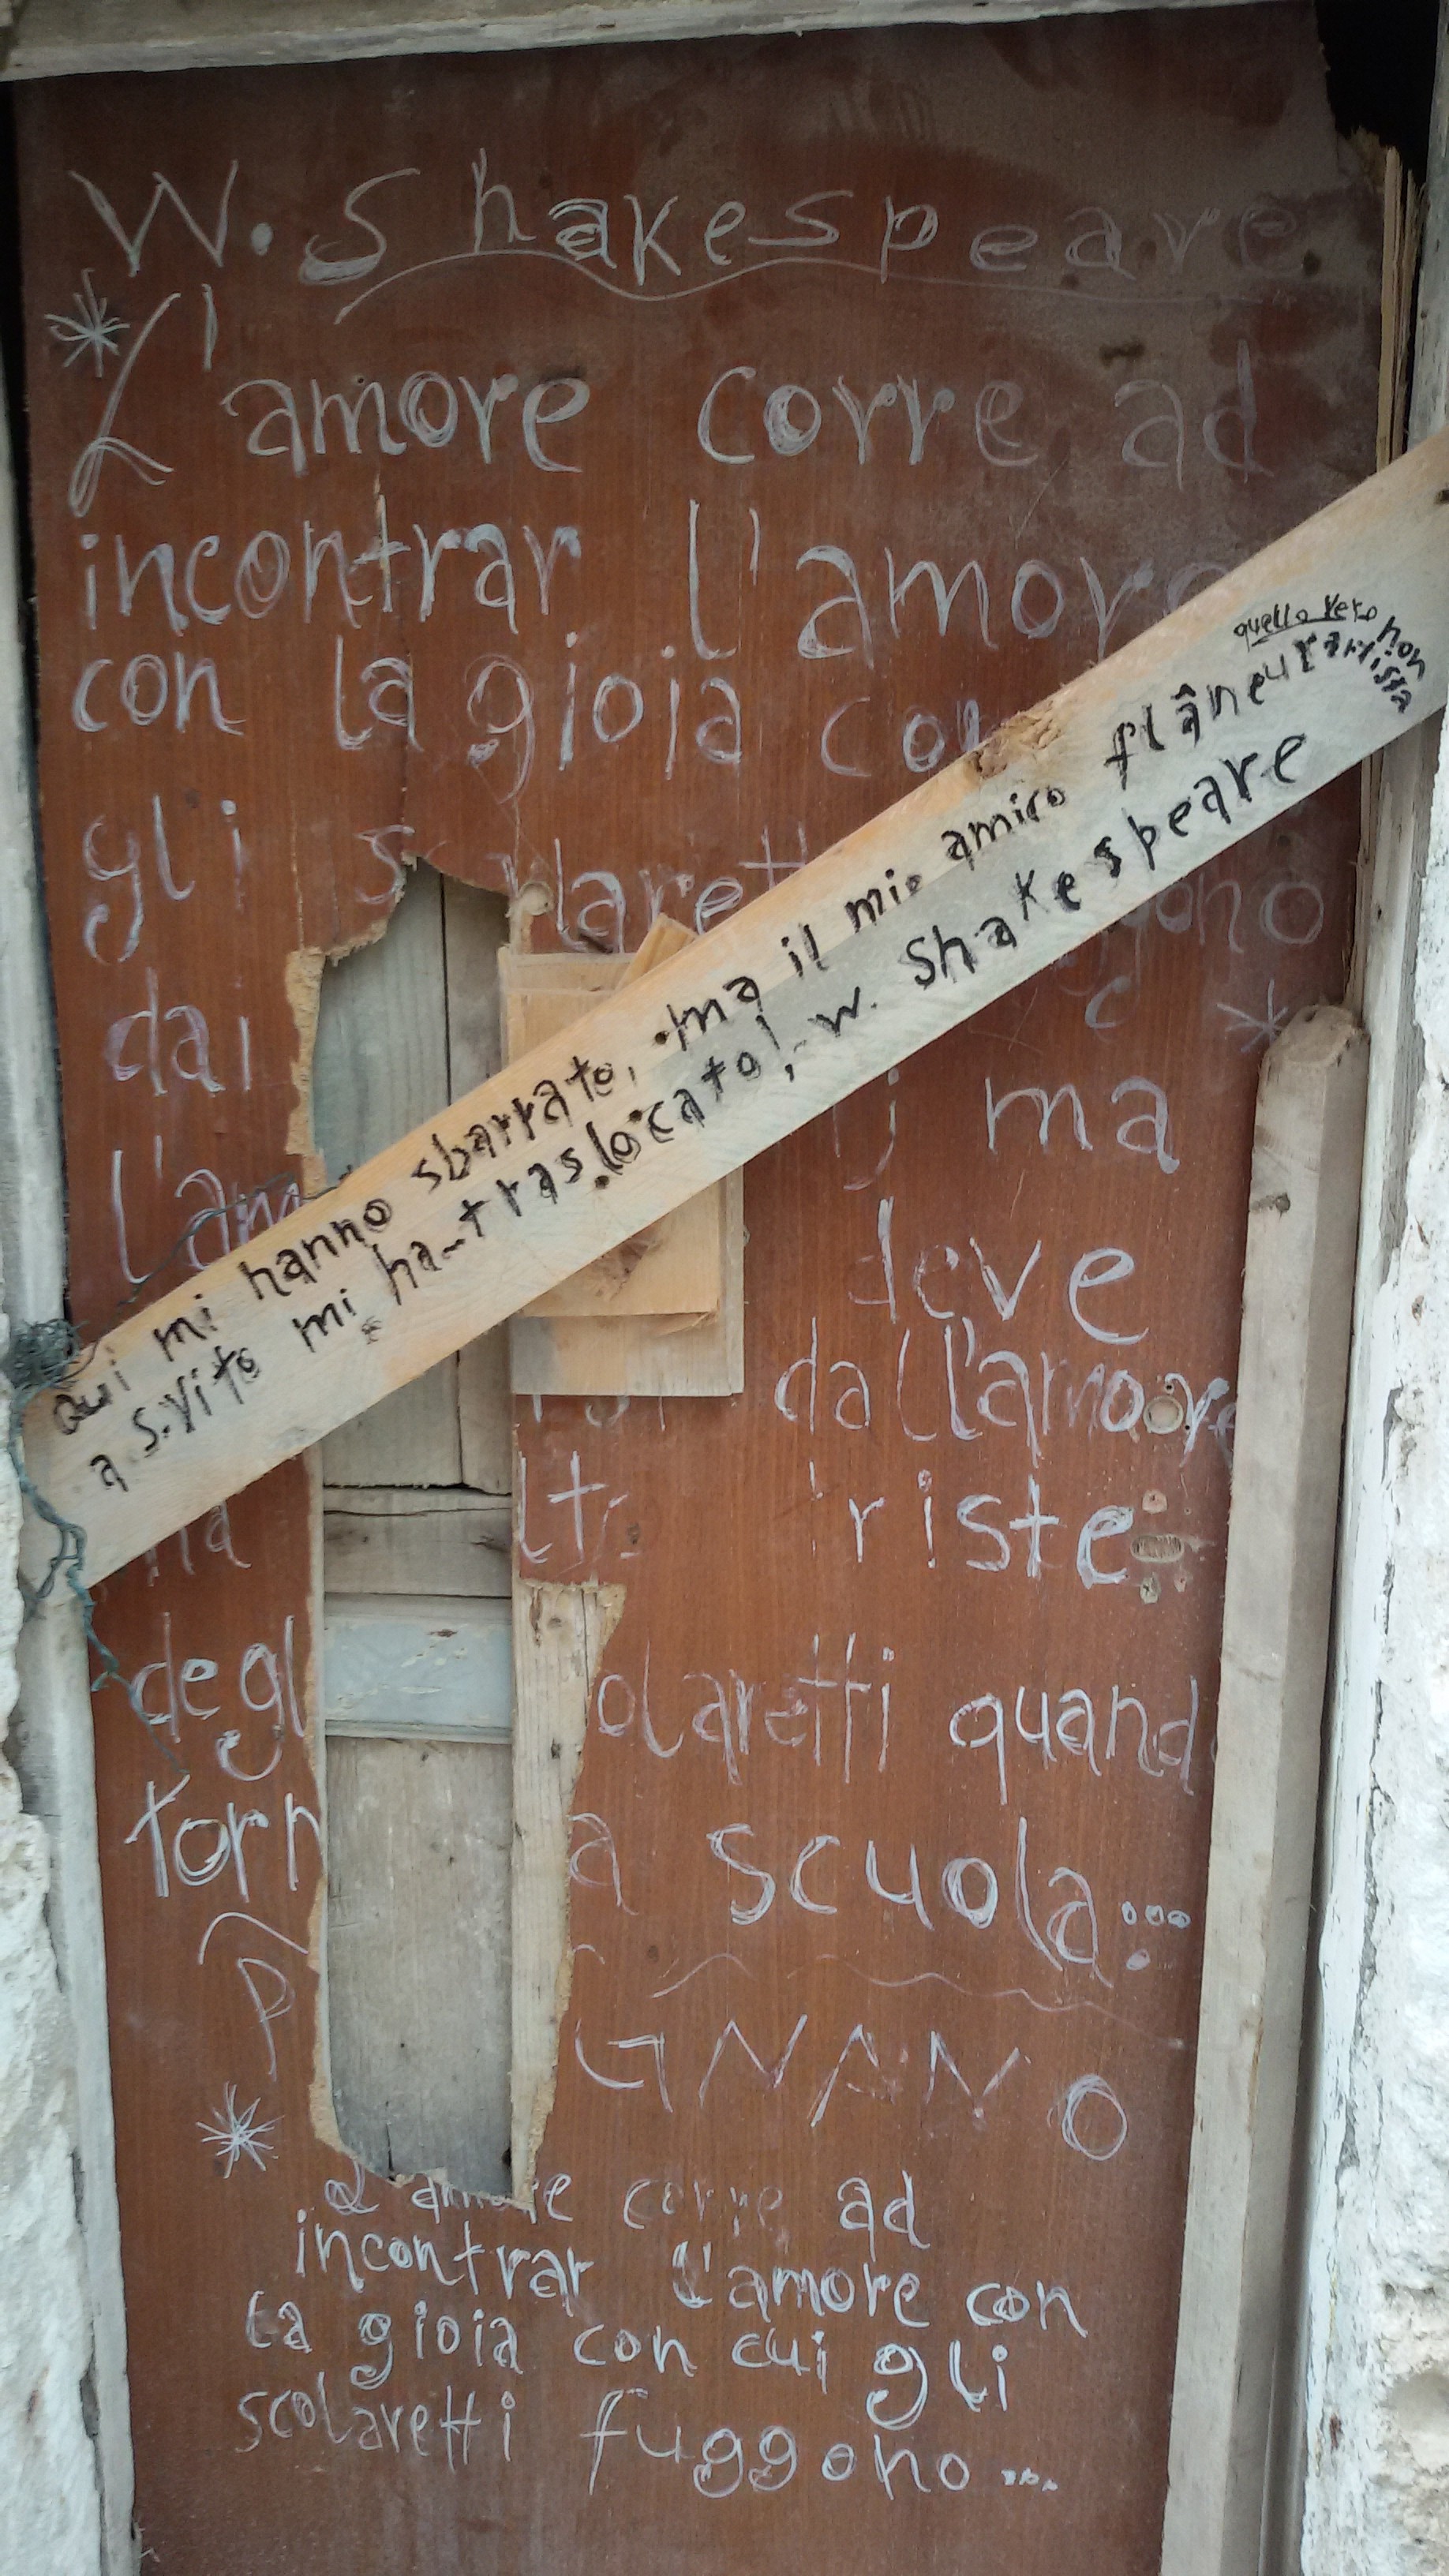 W. Shakespeare
* L'amore corre ad
incontrar l'amore
con la gioia con
gli s larett ono
dai c *
l'am i ma
deve
dall'amore
riste
degl olaretti quand
torn a scuola...
P GNANO
* L'amore corre ad
incontrar l'amore con
la gioia con cui gli
scolaretti fuggono...
quello vero non artista
qui mi hanno sbarrato, ma il mio amico flâneur
a S. Vito mi ha traslocato! W. Shakespeare